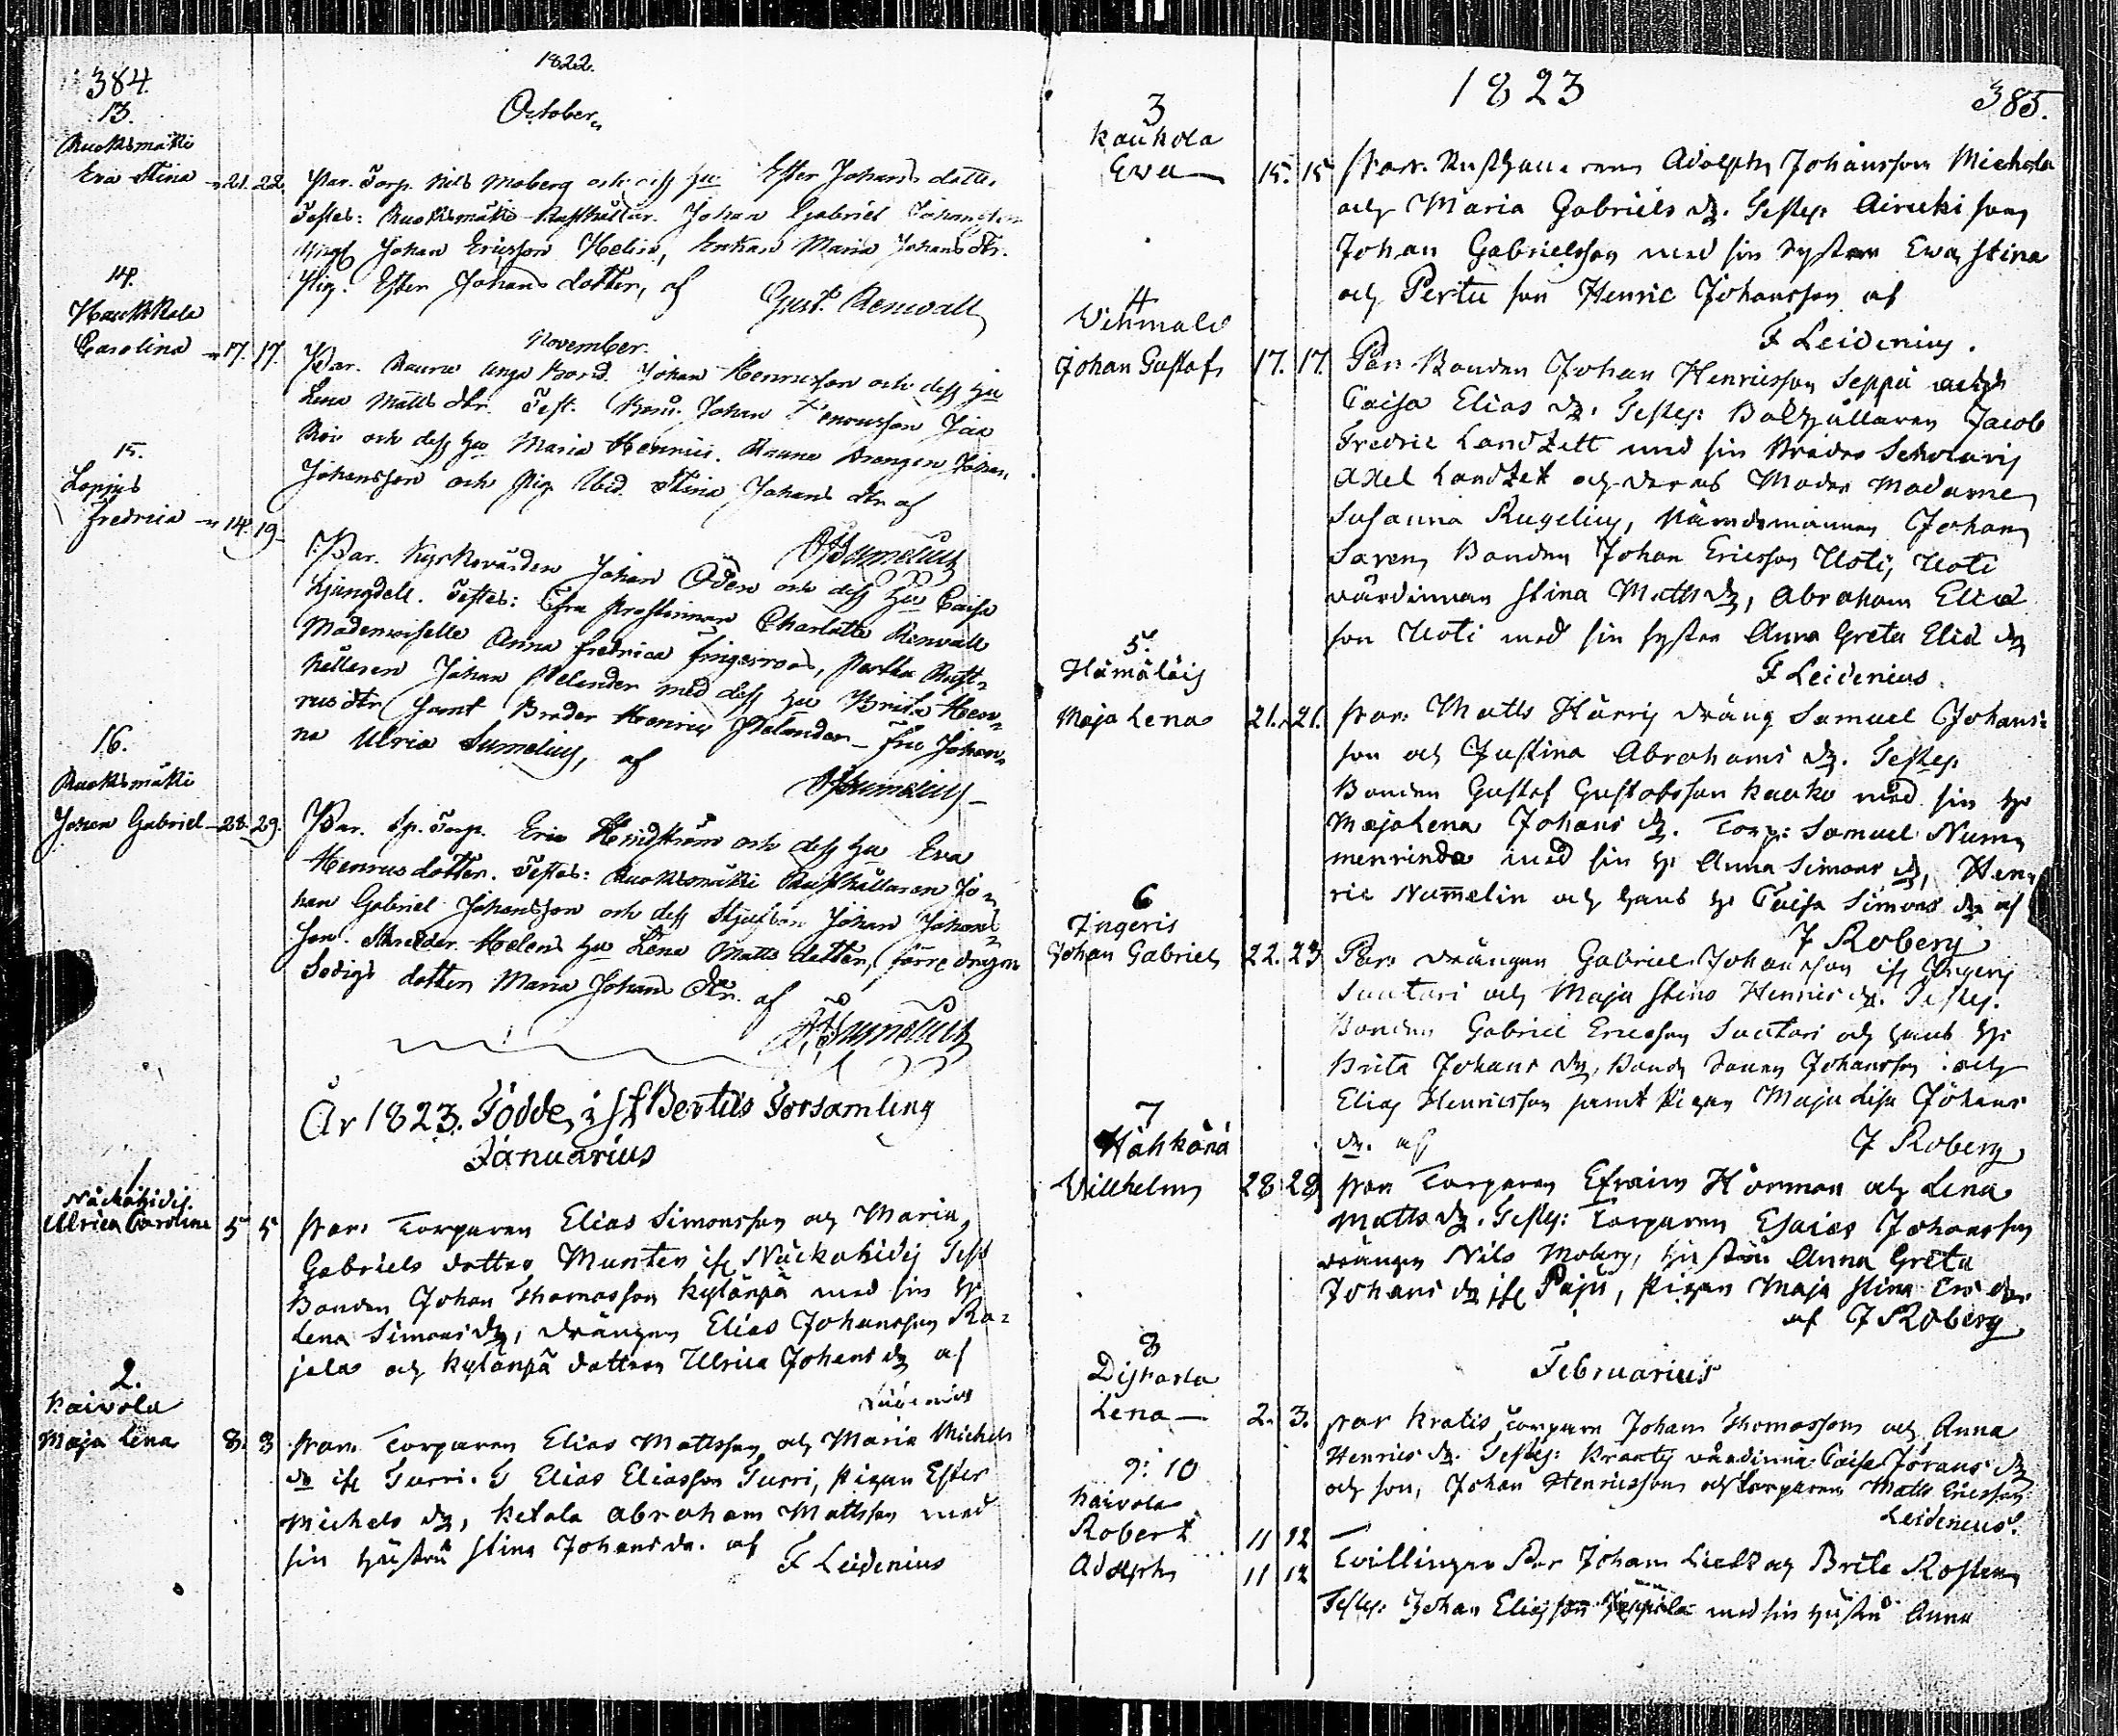 384.
1822.
October
13.
Ruoksmäki
Eva Stina 21. 22.
Par. Torp. Nils Moberg och dess Hu Ester Johans dotter
Testes: Ruoksmäki Rusthållar. Johan Gabriel Johansson
Johan Ericsson Helin, Enkan Maria Johans dtr.
Pig. Ester Johans dotter, af
Gust. Renwall
14.
Haukkala
Carolina 17. 17.
November.
Par. Bond. Johan Henricsson och dess Hu
Lena Matts dtr. Test. Johan Henricsson
och dess Hu Maria Henrici. Drängen Johan
Johansson och Pig. Stina Johans dtr af
Sumelius
15.
Lopjus
Fredrica 14. 19.
Par. Kyrkovärden Johan Öden och dess Hu Caisa
Ljungdell. Testes: Charlotta Renwall
Mademoiselle Anna Fredrica Fingerroos,
hållaren Johan Helander med dess Hu Brita Hen-
rics dtr samt Broder Henric Helander - Fru Johan-
na Ulrica Sumelius, af
Sumelius
16.
Ruoksmäki
Johan Gabriel 28. 29.
Par. Sp. Torp. Eric Hvidström och dess Hu Eva
Henrics dotter. Testes: Ruoksmäki Rusthållaren Jo-
han Gabriel Johansson och dess Styfson Johan Johans-
son. Skräddar Helens Hu Lena Matts dotter,
dotter Maria Johans dtr. af
Sumelius
År 1823. Födde i St Bertils Församling
Januarius
1
Näckähidis.
Ulrica Carolina 5 5
Par. Torparen Elias Simonsson och Maria
Gabriels dotter Munter ifr. Näckähidis Test
Bonden Johan Thomasson Kylänpä med sin H.
Lena Simons dr, drängen Elias Johansson Ra-
jala och Kylänpä dottren Ulrica Johans dr af
Leidenius
2.
Kaivola
Maja Lena 8. 8
Par. Torparen Elias Mattsson och Maria Michels
dr ifr Turri. T Elias Eliasson Turri, Pigan Ester
Michels dr, Ketola Abraham Mattsson med
sin hustru Stina Johans dr. af
F Leidenius
1823
385.
3
Kaukola
Eva 15. 15
Par. Rusthållaren Adolph Johansson Mickola
och Maria Gabriels dr. Testes: Airicki son
Johan Gabrielsson med sin Syster Ewa Stina
och Pertu son Henric Johansson af
F Leidenius.
4
Vehmalo
Johan Gustaf 17. 17.
Par. Bonden Johan Henricsson Seppä och
Caisa Elias dr. Testes: Bokhållaren Jacob
Fredric Landzett med sin Broder Scholaris
Axel Landzett och deras Moder Madame
Susanna Rugelius, Nämndemannen Johan
Saren, Bonden Johan Ericsson Uoti, Uoti
värdinnan Stina Matts dr, Abraham Elia
son Uoti med sin syster Anna Greta Elia dr
F Leidenius.
5.
Hämäläis
Maja Lena 21. 21.
Par. Matts Härris dräng Samuel Johans-
son och Justina Abrahams dr. Testes
Bonden Gustaf Gustafsson Kauko med sin H.
Maja Lena Johans dr. Torp: Samuel Num-
menrinda med sin H. Anna Simons dr, Hen-
ric Numelin och hans H. Caisa Simons dr af
F Roberg
6
Ingeris
Johan Gabriel 22. 23
Par. Drängen Gabriel Johansson ifr Ingeris
Suutari och Maja Stina Henrics dr. Testes.
Bonden Gabriel Ericsson Suutari och hans H.
Brita Johans dr, Bond. Johansson och
Elias Henricsson samt Pigan Maja Lisa Johans
dr. af
F Roberg
7
Hähkänä
Willhelm 28 29
Par. Torparen Efraim Hörman och Lena
Matts dr. Testes: Torparen Esaias Johansson
drängen Nils Moberg, hustru Anna Greta
Johans dr ifr Paju, Pigan Maja Stina Ers dr
af F Roberg
Februarius
8
Diskarla
Lena 2. 3.
Par Kratis Torpare Johan Thomasson och Anna
Henrics dr. Testes: värdinna Caisa Jörans dr
och son, Johan Henricsson och Torparen Matts Ericsson
Leidenius.
9: 10
Kaivola
Robert 11 12
Adolph 11 12
Tvillingar Par Johan och Brita Rosten
Testes: Johan Elias son Seppälä med sin hustru Anna